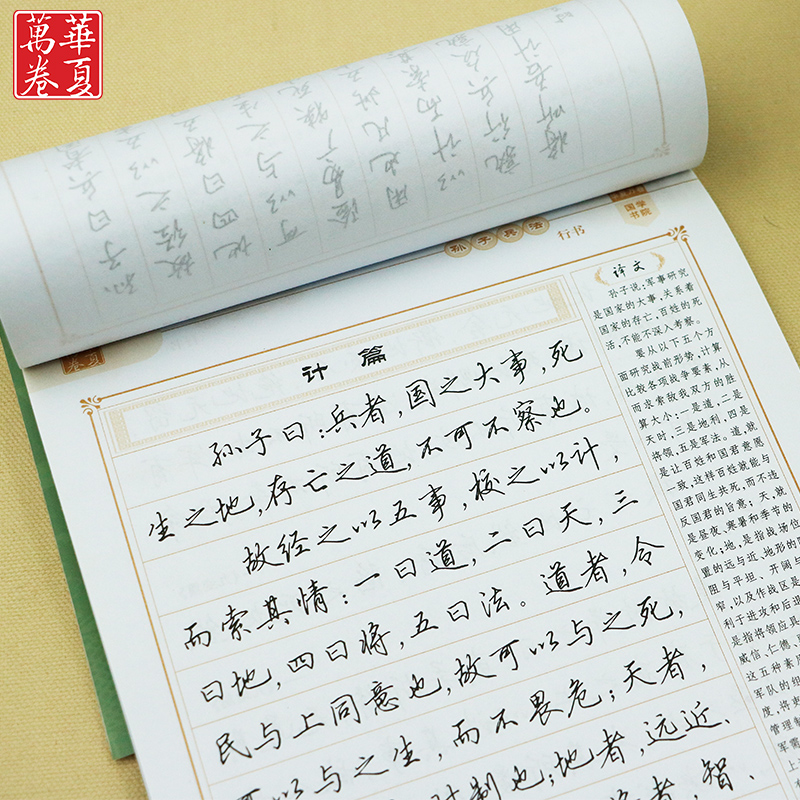 華夏
萬卷
国学
书院
孙子兵法
行书
计篇
孙子曰:兵者,国之大事,死
生之地,存亡之道,不可不察也。
故经之以五事,校之以计,
而索其情:一曰道,二曰天,三
曰地,四曰将,五曰法。道者,令
民与上同意也,故可以与之死,
可以与之生,而不畏危;天者,
时制也;地者,远近、
者,智、
译文
孙子说:军事研究
是国家的大事,关系着
国家的存亡,百姓的死
活,不能不深入考察。
要从以下五个方
面研究战前形势,计算
比较各项战争要素,从
而求索敌我双方的胜
算大小:一是道,二是
天时,三是地利,四是
将领,五是军法。道,就
是让百姓和国君意愿
一致,这样百姓就能与
国君同生共死,而不违
反国君的旨意;天,就
是昼夜、寒暑和季节的
变化;地,是指战场位
置的远与近、地形的险
阻与平坦、开阔与
窄,以及作战区是
利于进攻和后退
是指将领应具
威信、仁德、
这五种素
军队的组
度,将
管理
军需
上